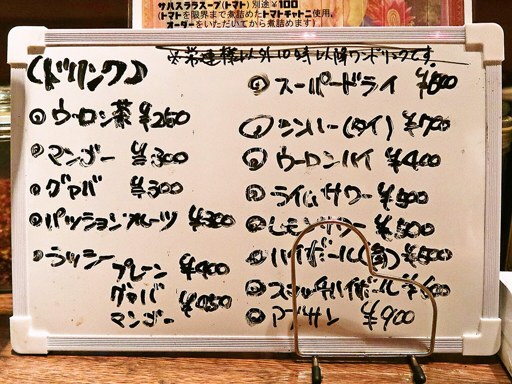 サルスララスープ(トマト)別途¥100
(トマトを限界まで煮詰めたトマトチャトニ使用。
オーダーをいただいてから煮詰めます)
※常連様以外10時以降ワンドリンクです
(ドリンク)
ウーロン茶 ¥250
マンゴー ¥300
グァバ ¥300
パッションフルーツ ¥300
ラッシー
プレーン ¥400
グァバ ¥450
マンゴー
スーパードライ ¥600
シンハー(タイ) ¥700
ウーロンハイ ¥400
ライムサワー ¥500
レモンサワー ¥500
ハイボール(角) ¥500
スコッチハイボール
アブサン ¥900